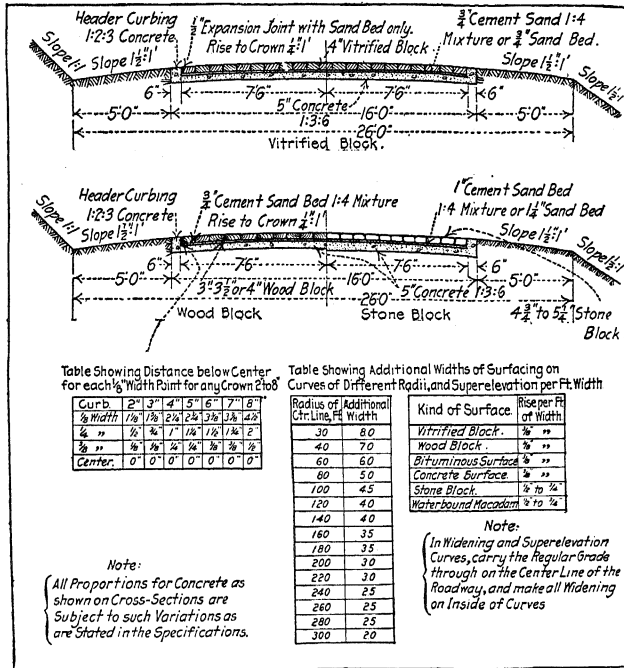 Header Curbing
1:2:3 Concrete
½" Expansion Joint with Sand Bed only.
Rise to Crown ¼":1'
4" Vitrified Block
¾" Cement Sand 1:4
Mixture or ¾" Sand Bed.
Slope 1:1
Slope 1½":1'
Slope 1½":1'
Slope 1½:1
6"
7'6"
5" Concrete
1:3:6
7'6"
6"
5'0"
16'0"
5'0"
26'0"
Vitrified Block.
Header Curbing
1:2:3 Concrete
¾" Cement Sand Bed 1:4 Mixture
Rise to Crown ¼":1'
1" Cement Sand Bed
1:4 Mixture or 1¼" Sand Bed
Slope 1:1
Slope 1½":1'
Slope 1½":1'
Slope 1½:1
6"
7'6"
7'6"
6"
5'0"
16'0"
5'0"
3" 3½" or 4" Wood Block
26'0"
5" Concrete 1:3:6
Wood Block
Stone Block
4¾" to 5¼" Stone
Block
Table Showing Distance below Center
for each ⅛" Width Point for any Crown 2 to 8"
Curb. 2" 3" 4" 5" 6" 7" 8"
⅛ Width 1⅛" 1⅝" 2¼" 2¾" 3⅜" 3⅞" 4½"
¼ " ½" ¾" 1" 1¼" 1½" 1¾" 2"
⅜ "
Center. 0" 0" 0" 0" 0" 0" 0"
Table Showing Additional Widths of Surfacing on
Curves of Different Radii, and Superelevation per Ft. Width
Radius of Additional
Ctr. Line, Ft. Width
30 8.0
40 7.0
60 6.0
80 5.0
100 4.5
120 4.0
140 4.0
160 3.5
180 3.5
200 3.0
220 3.0
240 2.5
260 2.5
280 2.5
300 2.0
Kind of Surface. Rise per Ft
of Width.
Vitrified Block. "
Wood Block. "
Bituminous Surface "
Concrete Surface. "
Stone Block. ½" to ¾"
Waterbound Macadam ½" to ¾"
Note:
In Widening and Superelevation
Curves, carry the Regular Grade
through on the Center Line of the
Roadway, and make all Widening
on Inside of Curves
Note:
All Proportions for Concrete as
shown on Cross-Sections are
Subject to such Variations as
are Stated in the Specifications.